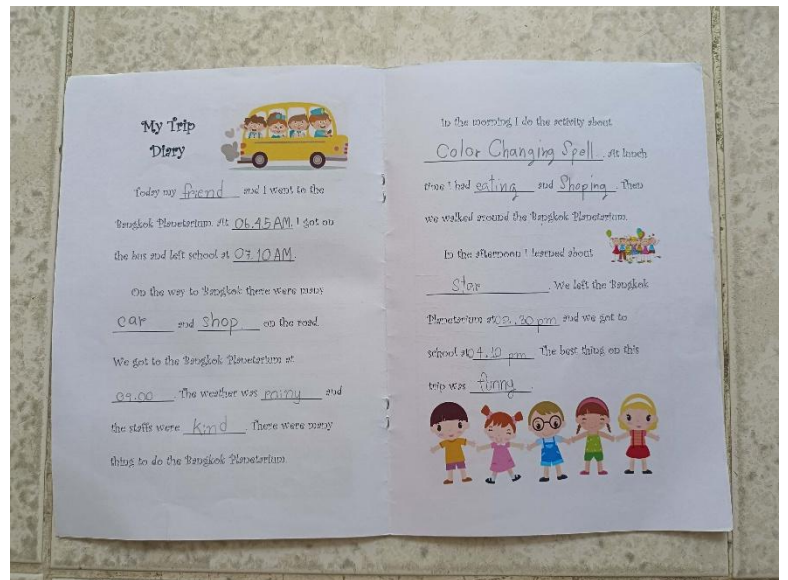 My Trip
Diary
Today my friend and I went to the
Bangkok Planetarium. At 06.45 AM. I got on
the bus and left school at 07.10 AM.
On the way to Bangkok there were many
car and shop on the road.
We got to the Bangkok Planetarium at
09.00. The weather was rainy and
the staffs were kind. There were many
thing to do the Bangkok Planetarium.
In the morning I do the activity about
Color Changing Spell. At lunch
time I had eating and Shoping. Then
we walked around the Bangkok Planetarium.
In the afternoon I learned about
Star. We left the Bangkok
Planetarium at 02.30 pm and we got to
school at 04.10 pm The best thing on this
trip was funny.